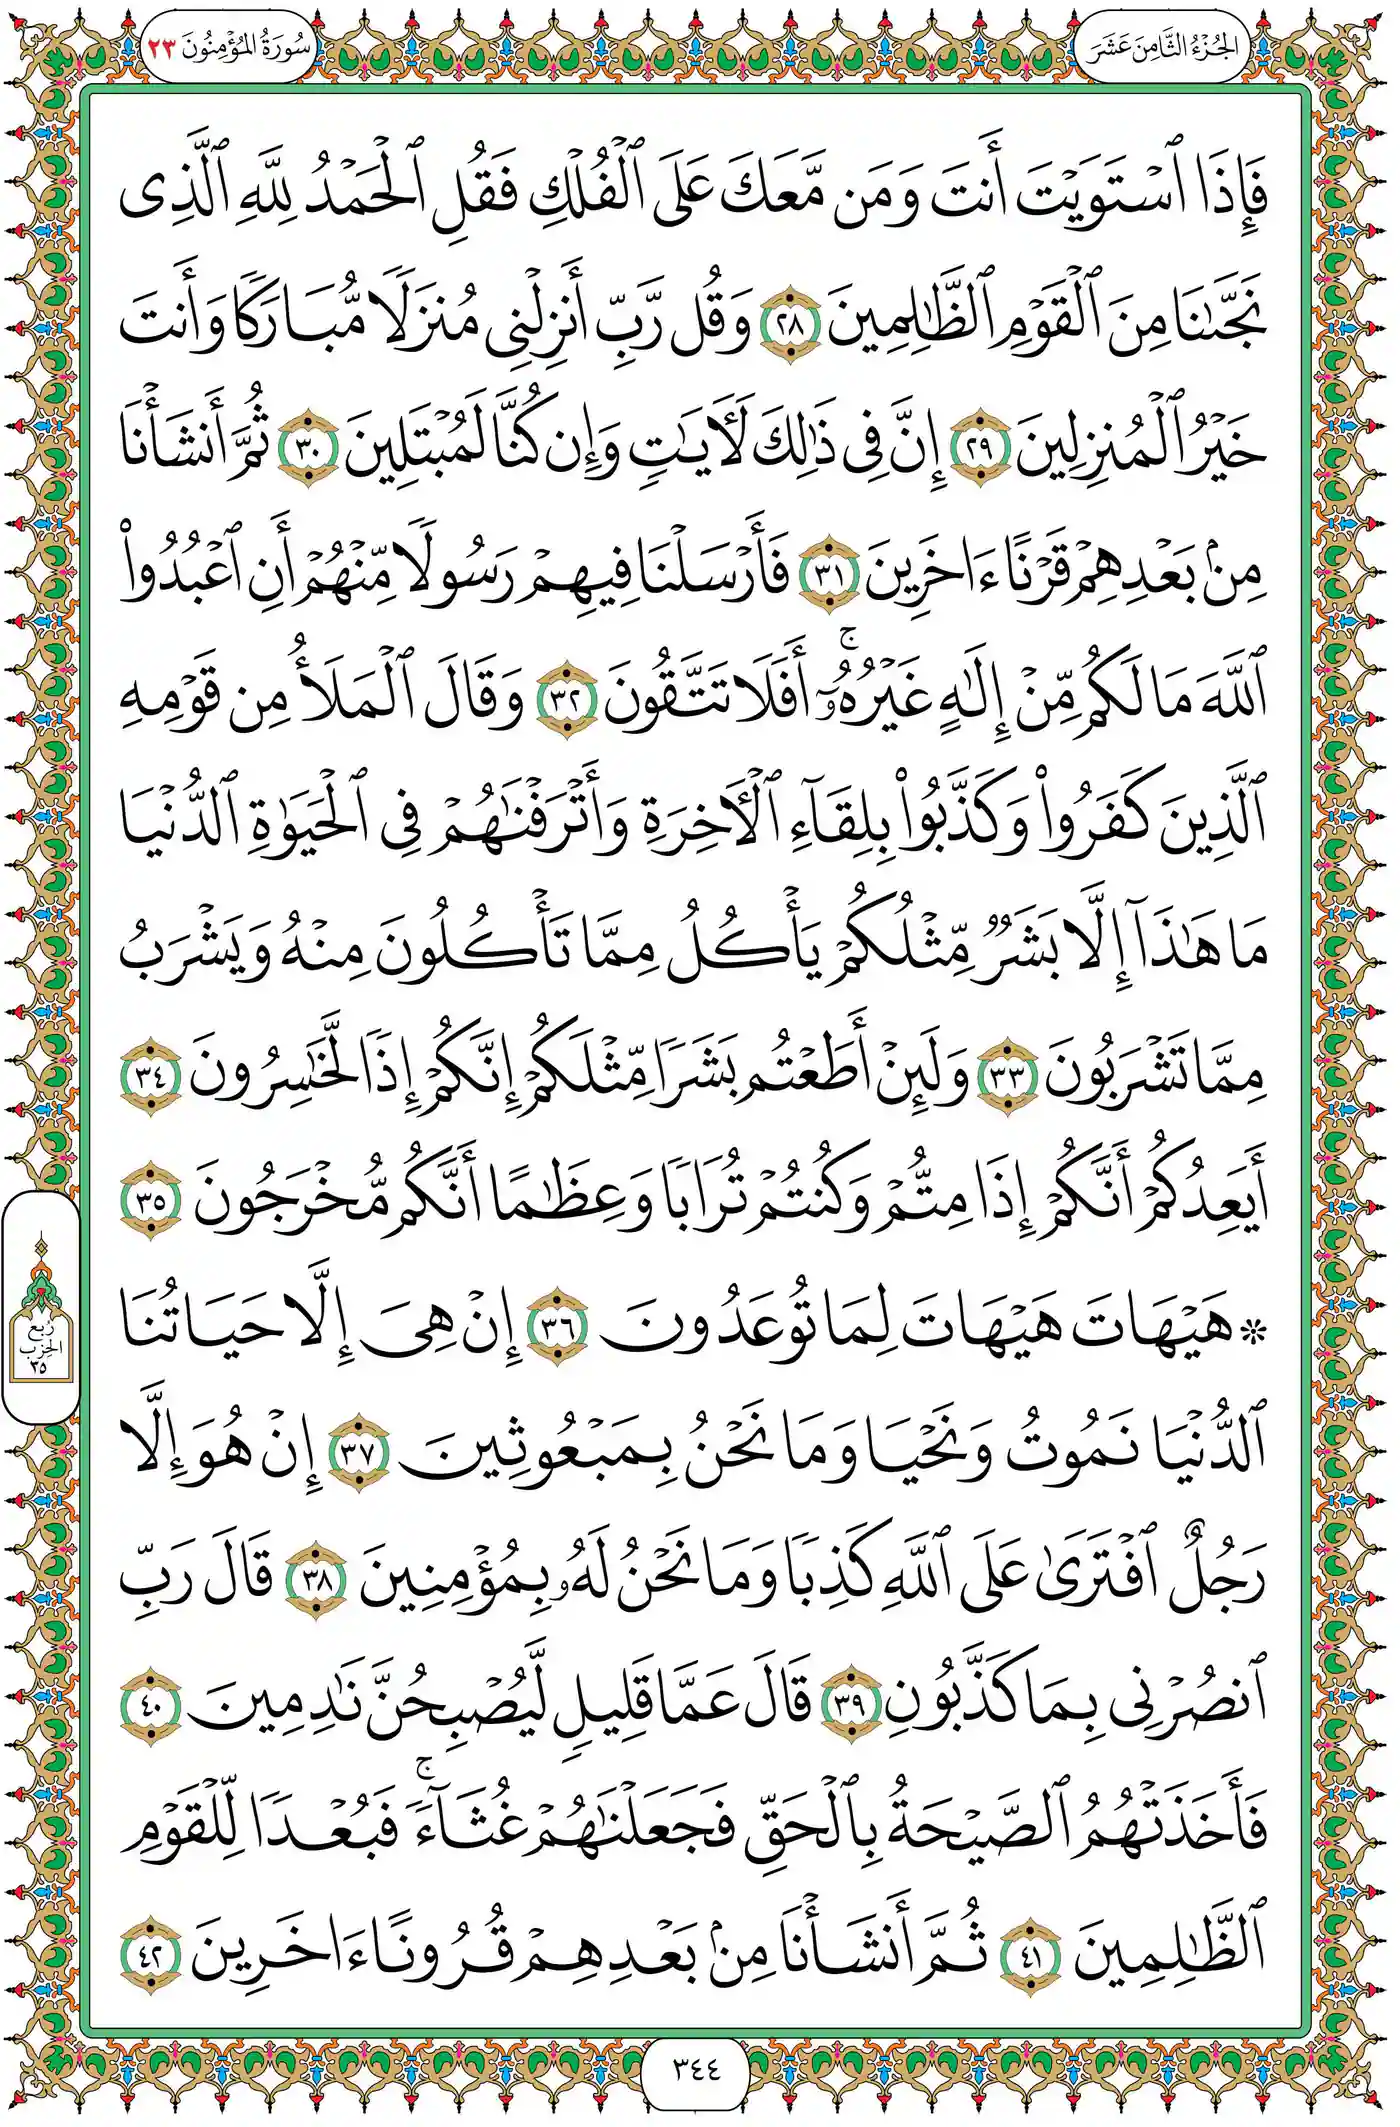 الجُزْءُ الثَّامِنَ عَشَرَ
سُورَةُ المُؤْمِنُونَ ٢٣
فَإِذَا ٱسْتَوَيْتَ أَنتَ وَمَن مَّعَكَ عَلَى ٱلْفُلْكِ فَقُلِ ٱلْحَمْدُ لِلَّهِ ٱلَّذِى
نَجَّىٰنَا مِنَ ٱلْقَوْمِ ٱلظَّٰلِمِينَ ٢٨ وَقُل رَّبِّ أَنزِلْنِى مُنزَلًا مُّبَارَكًا وَأَنتَ
خَيْرُ ٱلْمُنزِلِينَ ٢٩ إِنَّ فِى ذَٰلِكَ لَءَايَٰتٍ وَإِن كُنَّا لَمُبْتَلِينَ ٣٠ ثُمَّ أَنشَأْنَا
مِنۢ بَعْدِهِمْ قَرْنًا ءَاخَرِينَ ٣١ فَأَرْسَلْنَا فِيهِمْ رَسُولًا مِّنْهُمْ أَنِ ٱعْبُدُوا۟
ٱللَّهَ مَا لَكُم مِّنْ إِلَٰهٍ غَيْرُهُۥٓ ۚ أَفَلَا تَتَّقُونَ ٣٢ وَقَالَ ٱلْمَلَأُ مِن قَوْمِهِ
ٱلَّذِينَ كَفَرُوا۟ وَكَذَّبُوا۟ بِلِقَآءِ ٱلْءَاخِرَةِ وَأَتْرَفْنَٰهُمْ فِى ٱلْحَيَوٰةِ ٱلدُّنْيَا
مَا هَٰذَآ إِلَّا بَشَرٌ مِّثْلُكُمْ يَأْكُلُ مِمَّا تَأْكُلُونَ مِنْهُ وَيَشْرَبُ
مِمَّا تَشْرَبُونَ ٣٣ وَلَئِنْ أَطَعْتُم بَشَرًا مِّثْلَكُمْ إِنَّكُمْ إِذًا لَّخَٰسِرُونَ ٣٤
أَيَعِدُكُمْ أَنَّكُمْ إِذَا مِتُّمْ وَكُنتُمْ تُرَابًا وَعِظَٰمًا أَنَّكُم مُّخْرَجُونَ ٣٥
۞ هَيْهَاتَ هَيْهَاتَ لِمَا تُوعَدُونَ ٣٦ إِنْ هِىَ إِلَّا حَيَاتُنَا
ٱلدُّنْيَا نَمُوتُ وَنَحْيَا وَمَا نَحْنُ بِمَبْعُوثِينَ ٣٧ إِنْ هُوَ إِلَّا
رَجُلٌ ٱفْتَرَىٰ عَلَى ٱللَّهِ كَذِبًا وَمَا نَحْنُ لَهُۥ بِمُؤْمِنِينَ ٣٨ قَالَ رَبِّ
ٱنصُرْنِى بِمَا كَذَّبُونِ ٣٩ قَالَ عَمَّا قَلِيلٍ لَّيُصْبِحُنَّ نَٰدِمِينَ ٤٠
فَأَخَذَتْهُمُ ٱلصَّيْحَةُ بِٱلْحَقِّ فَجَعَلْنَٰهُمْ غُثَآءً ۚ فَبُعْدًا لِّلْقَوْمِ
ٱلظَّٰلِمِينَ ٤١ ثُمَّ أَنشَأْنَا مِنۢ بَعْدِهِمْ قُرُونًا ءَاخَرِينَ ٤٢
رُبع
الحِزب
٣٥
٣٤٤